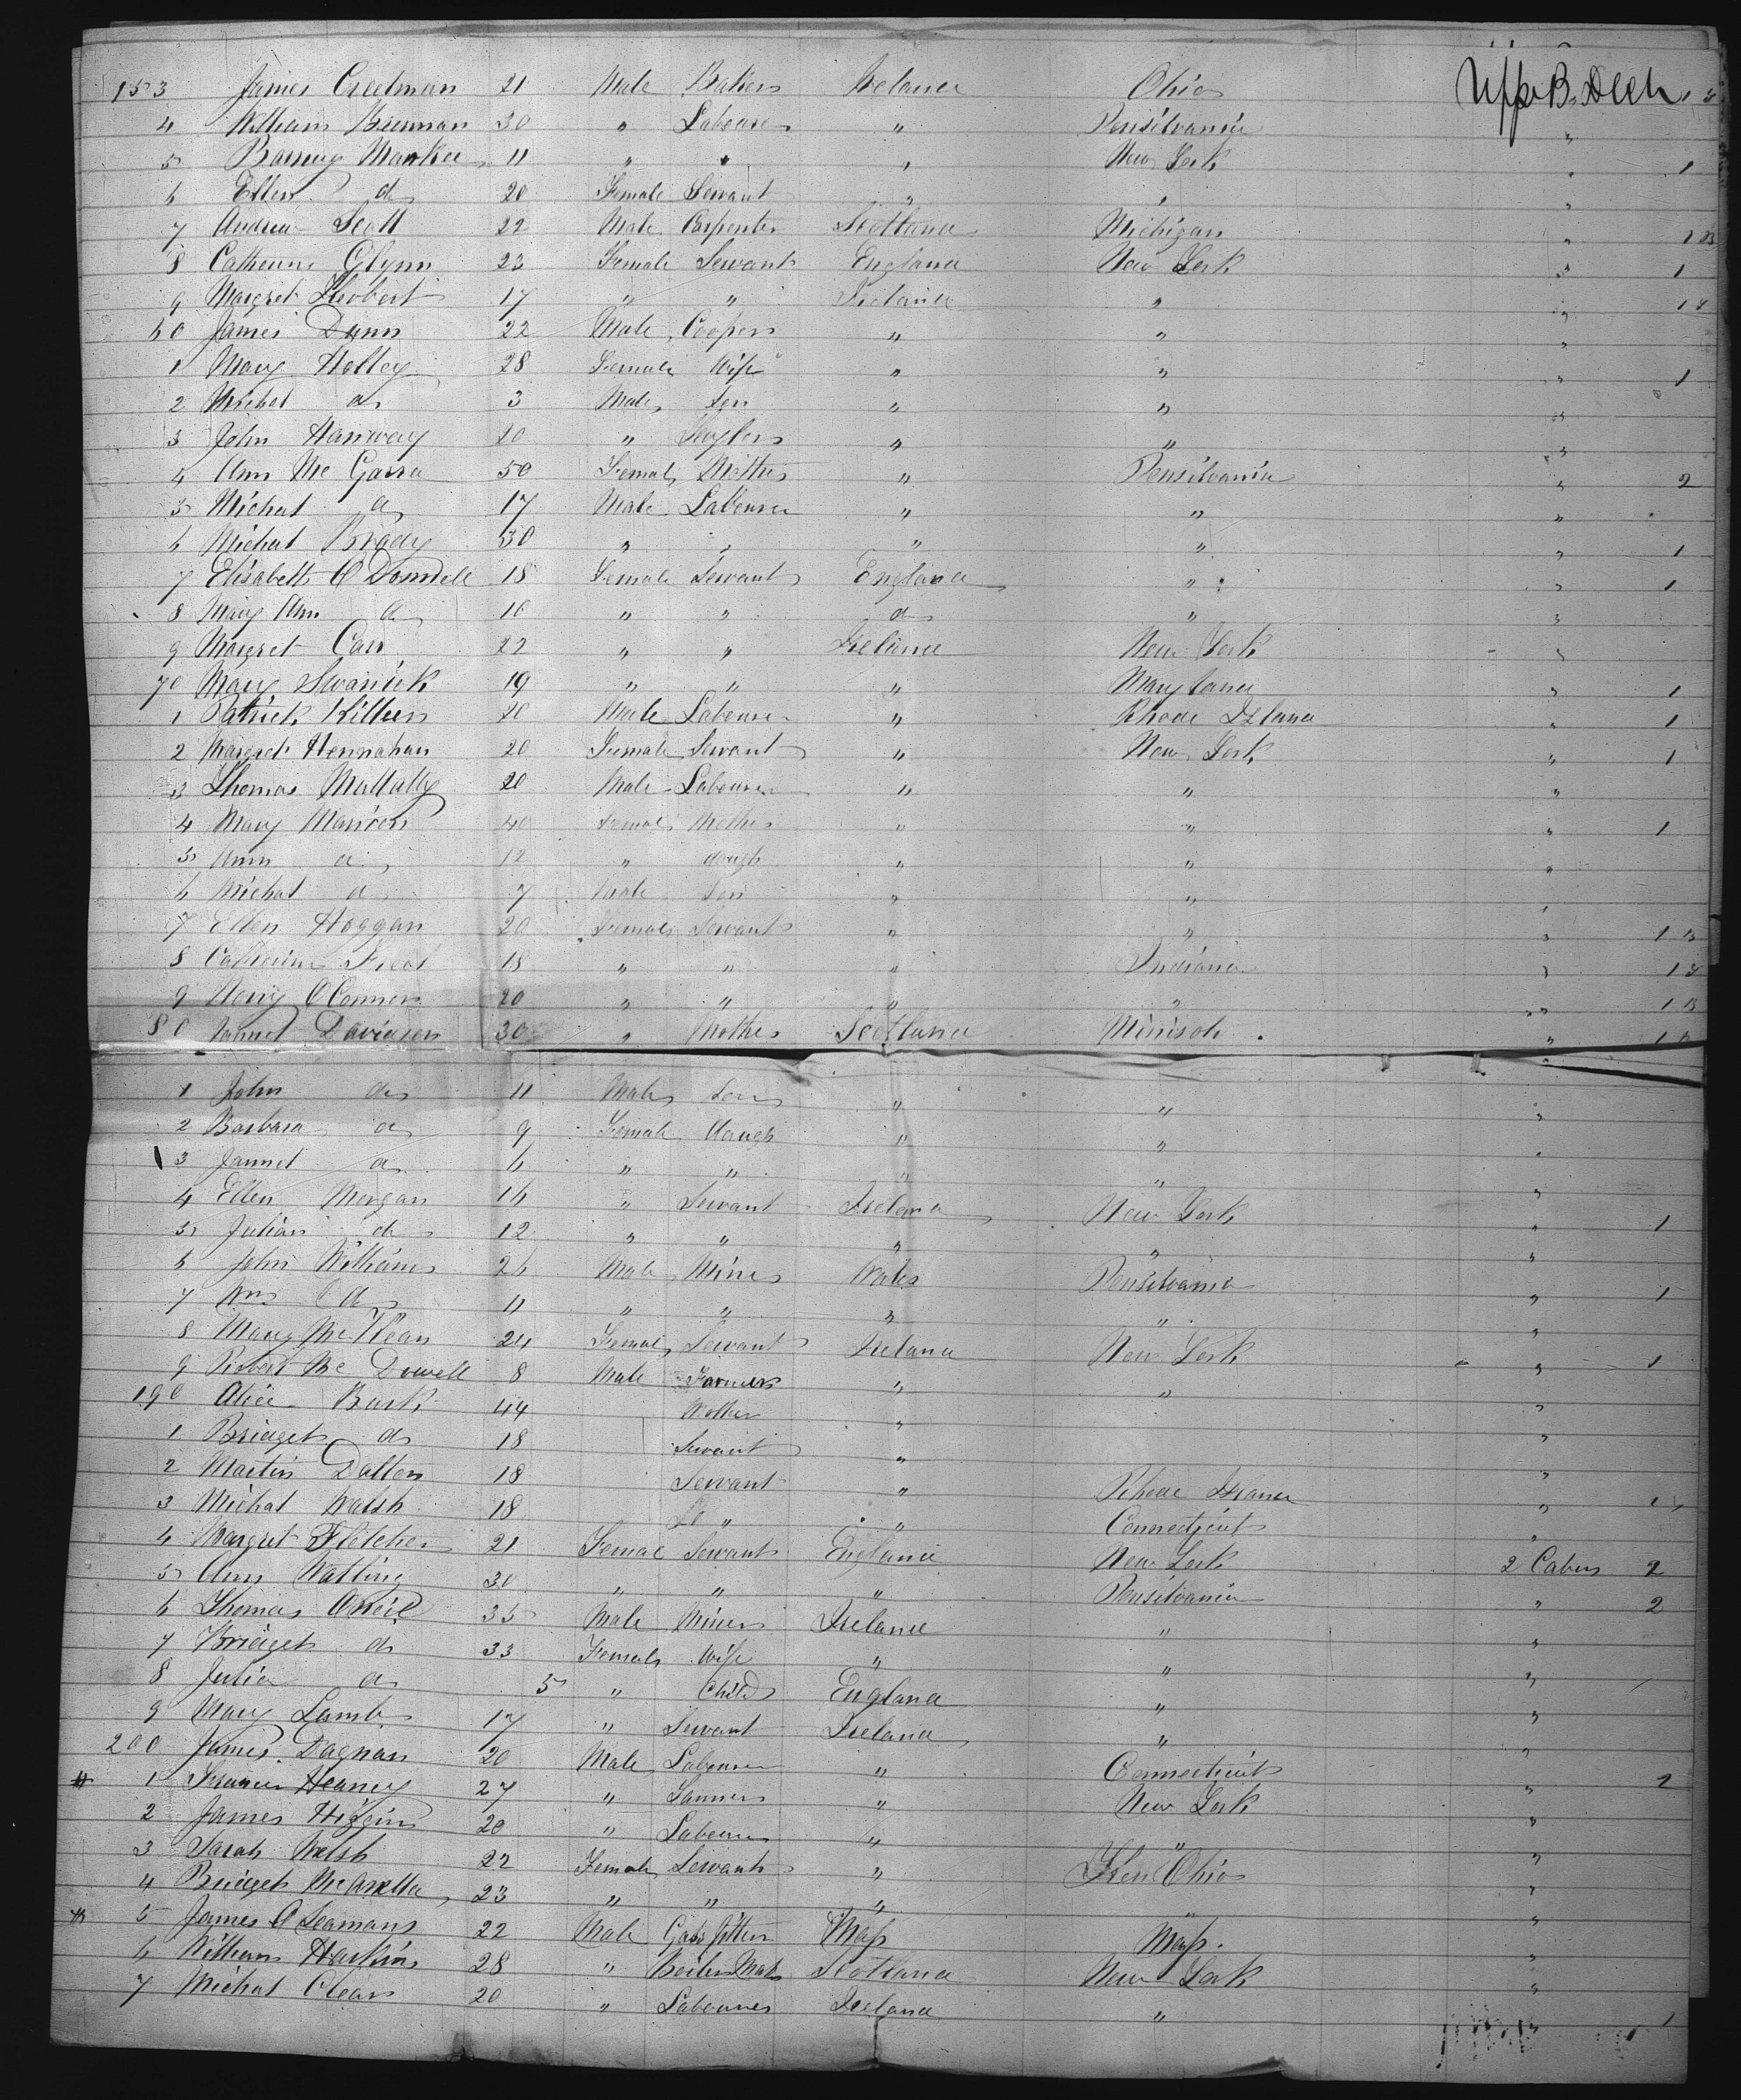 153 James Creedman 21 Male Baker Ireland Ohio Upper Deck
4 William Brennan 30 " Labourer " Pensilvania "
5 Barney 11 " " " New York " 1
6 Ellen do 20 Female Servant " " "
7 Andrew Scott 22 Male Carpenter Scotland Michigan " 1
8 Catherine Glynn 23 Female Servant England New York " 1
9 Margret Herbert 17 " " Ireland " " 1
60 James Dunn 22 Male Cooper " " "
1 Mary Holley 28 Female Wife " " " 1
2 Michal do 3 Male Son " " "
3 John Hanway 20 " " " "
4 Ann Mc Garra 50 Female Mother " Pensilvania " 2
5 Michal do 17 Male Labourer " " "
6 Michal Brady 30 " " " " " 1
7 Elisabeth O Donnell 18 Female Servant England " " 1
8 Mary Ann do 16 " " do " "
9 Margret Carr 22 " " Ireland New York "
70 Mary Swanick 19 " " " Maryland " 1
1 Patrick Killeen 20 Male Labourer " Rhode Island " 1
2 Margret Hennahan 20 Female Servant " New York " 1
3 Thomas Mullally 20 Male Labourer " " "
4 Mary 40 Female Mother " " " 1
5 Ann do 12 " daugh " " "
6 Michal do 7 Male Son " " "
7 Ellen Hoggan 20 Female Servant " " " 1
8 Catherine 18 " " " Indiana " 1
9 O Conner 20 " " " " " 1
80 Jannet Davidson 30 " Mother Scotland " 1
1 John do 11 Male Son " " "
2 Barbara do 9 Female daugh " " "
3 Jannet do 6 " " " " "
4 Ellen Morgan 16 " Servant Ireland New York " 1
5 Julian do 12 " " " " "
6 John Williams 26 Male Miner Wales Pensilvania " 1
7 Wm do 11 " " " " "
8 Mary Mc Kean 24 Female Servant Ireland New York " 1
9 Robert Mc Dowell 8 Male Farmer " " "
190 Alice Burk 44 Mother " "
1 Bridget do 18 Servant " "
2 Martin Dalton 18 Servant " Rhode Island " 1
3 Michal Walsh 18 Do " " Connecticut "
4 Margret Fletcher 21 Female Servant England New York 2 Cabin 2
5 Ann Watling 30 " " " Pensilvania " 2
6 Thomas Oneil 35 Male Miner Ireland " "
7 Bridget do 33 Female Wife " " "
8 Julia do 5 " Child England " "
9 Mary Lamb 17 " Servant Ireland " "
200 James Dagnan 20 Male Labourer " Connecticut " 2
1 Heaney 27 " " New York "
2 James Higgins 20 " Labourer " " "
3 Sarah Welsh 22 Female Servant " Ohio "
4 Bridget 23 " " " " "
5 James O Leamans 22 Male Gass fitter Mass Mass. "
6 William Harkins 28 " Boiler Mak Scotland New York "
7 Michal Clear 20 " Labourer Ireland " " 1